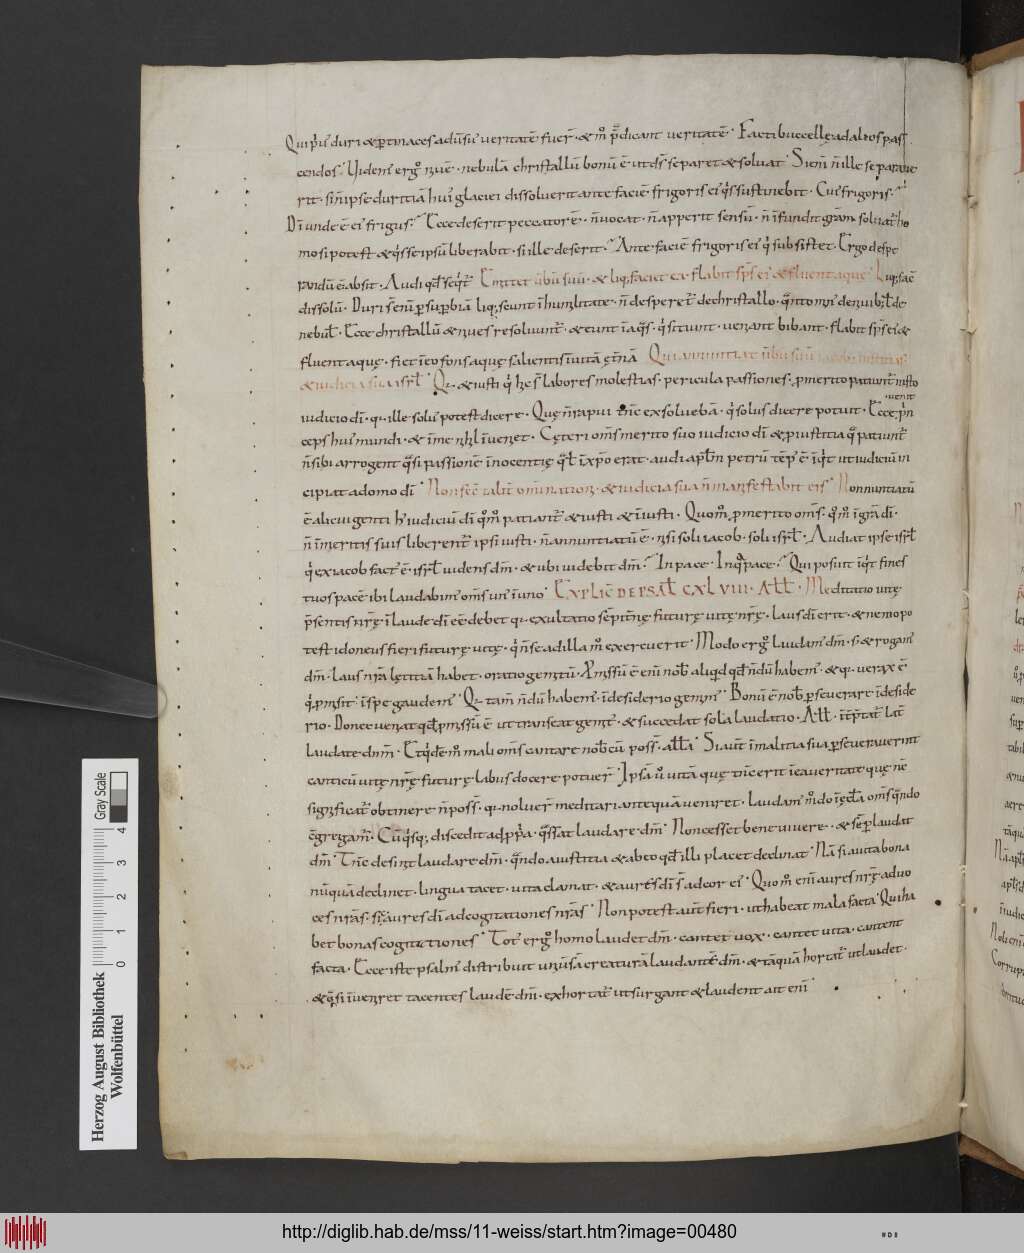 Qui p̄us duri & ptinaces adūsus veritatē fuer̄. & m̊ p̄dicant veritatē. Facti buccellę ad alios pas
cendos. Uidens ergo niuē. nebulā christallū bonū ē ut d̄s separet & soluat. Si eni n̄ ille separaue
rit. si n̄ ipse duritiā hui glaciei dissoluerit ante faciē frigoris ei q's sustinebit. Cui' frigoris.
Dī unde ē ei frigus. Ecce deserit peccatorē. n̄ uocat. n̄ apperit sensū. n̄ ifundit grām. soluat' ho
mo si potest & q's se ipsū liberabit. si ille deserit. Ante faciē frigoris ei q' subsistet. Ergo despe
randū ē absit. Audi qd seq't. Emittet ūbū suū. & liq;faciet ea flabit sp̄s ei & fluent aque. Liq;faē
dissolū. Duri s̄ enī p supbiā liq;scunt ī humilitate. n̄ desperet' de christallo. q̄nto m̄ de niui; l de
nebul'. Ecce christallū & niues resoluunt'. & eunt ī aq̄s. q' sitiunt. ueniant bibant. flabit sp̄s ei &
fluent aquę. fiet ī eo fons aquę salientis ī uitā ętnā Qui annuntiat ūbū suū iacob. iustitias
& iudicia sua isrl. Qi. & iusti q' hęc s̄ labores molestias. pericula passiones. pmerito patiunt' iusto
iudicio dī. qi. ille solus potest dicere. Quę n̄ rapui tn̄c exsoluebā. q' solus dicere potuit. Ecce p̄n
·uenit
ceps hui mundi. & ī me nihl ī ueniet. Cęteri om̄s merito suo iudicio dī & p iustitia q̄ patiunt'
n̄ sibi arrogent q̄si passionē innocentię q̄l' ī xp̄o erat. audi aplm petrū tēp' ē īq't ut iudiciū in
cipiat a domo dī. Non fec̄ talit' om̄i nationi. & iudicia sua n̄ manifestabit eis. Non nuntiatū
ē alicui genti h' iudiciū dī qm̊ patiant' & iusti & iniusti. Quom̊ pmerito om̄s. qm̊ ī gr̄a dī.
n̄ ī meritis suis liberent' ipsi iusti. n̄ annuntiatū ē. nisi soli iacob. soli isrl. Audiat ipse isrl
q' ex iacob fact' ē isrl uidens dm̄. & ubi uidebit dm̄. In pace. In q̄ pace. Qui posuit īq't fines
tuos pacē ibi laudabim' om̄s un' ī uno. EXPLIC̄ DE PSAL CXLVIII. ALL. Meditatio uitę
p̄sentis nr̄ę ī laude dī eē debet qi. exultatio sēpitnę futurę uitę nr̄ę. laus dī erit. & nemo po
test idoneus fieri futurę uitę. q' n̄ se ad illa m̊ exercuerit. Modo ergo laudam' dm̄. s; & rogam'
dm̄. laus nr̄a lętitiā habet. oratio gemitū. Pmissū ē enī nob̄ aliqd qd nōdū habem'. & qi. uerax ē
q' pmisit ī spe gaudem'. Qi. tam̄ nōdū habem'. ī desiderio gemim'. Bonū ē nob̄ pseuerare ī deside
rio. Donec ueniat qd pmissū ē ut transeat gemit'. & succedat sola laudatio. All. ītp̄tat' lat̄
laudate dnm̄. Etq'dē m̊ mali om̄s cantare nob̄cū poss̄. alla. Si aut̄ ī malitia sua pseuerauerint
canticū uitę nr̄ę futurę labiis docere potuer̄. Ipsā u̅ uitā quę tn̄c erit ī ea ueritate quę n̄c
significat' obtinere n̄ poss̄. qi. noluer̄ meditari antequā ueniret. laudam' m̊ do ī eccl'a om̄s q̄ndo
cōgregam̄. Cū q'sq; discedit ad ppria. q̄si cessat laudare dm̄. Non cesset bene uiuere. & sēp laudat
dm̄. Tn̄c desinit laudare dm̄. q̄ndo a iustitia & ab eo qd illi placet declinat. Nā si a uita bona
nūquā declinet. lingua tacet. uita clamat. & aures dī s̄ ad cor ei. Quom̊ enī aures nr̄ę ad uo
ces nr̄as. sic aures dī ad cogitationes nr̄as. Non potest aut̄ fieri. ut habeat mala facta. Qui ha
bet bonas cogitationes. Tot' ergo homo laudet dm̄. cantet uox. cantet uita. cantent
facta. Ecce iste psalm' distribuit uniūsā creaturā laudantē dm̄. & tāquā hortat' ut laudet.
& q̄si ī ueniret tacentes laudē dm̄. exhortat' ut surgant & laudent ait enī
Herzog August Bibliothek
Wolfenbüttel
0 1 2 3 4
Gray Scale
http://diglib.hab.de/mss/11-weiss/start.htm?image=00480